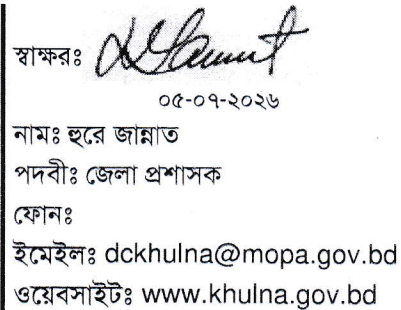 স্বাক্ষরঃ
০৫-০৭-২০২৬
নামঃ হুরে জান্নাত
পদবীঃ জেলা প্রশাসক
ফোনঃ
ইমেইলঃ dckhulna@mopa.gov.bd
ওয়েবসাইটঃ www.khulna.gov.bd